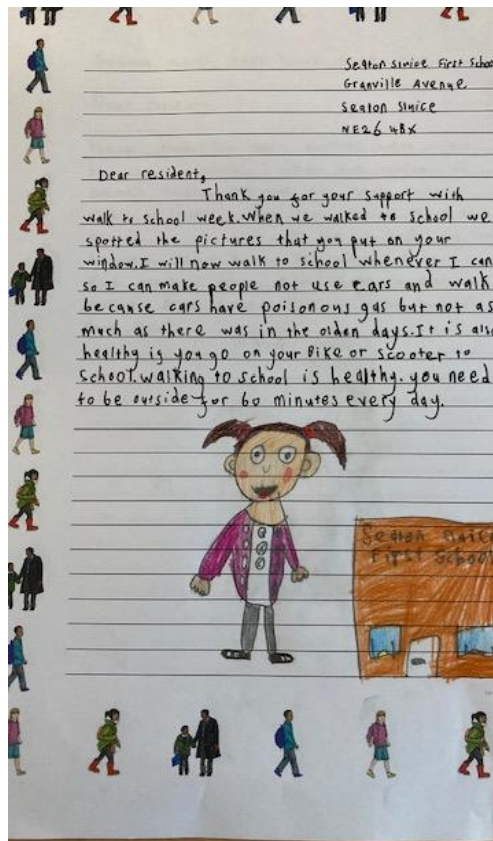 Seaton Sluice First Schoo
Granville Avenue
Seaton Sluice
NE26 4BX
Dear resident,
Thank you for your support with
walk to school week. When we walked to school we
spotted the pictures that you put on your
window. I will now walk to school whenever I can
so I can make people not use cars and walk
because cars have poisonous gas but not as
much as there was in the olden days. It is also
healthy if you go on your Bike or scooter to
School. walking to school is healthy. you need
to be outside for 60 minutes every day.
Seaton Sluice
First School